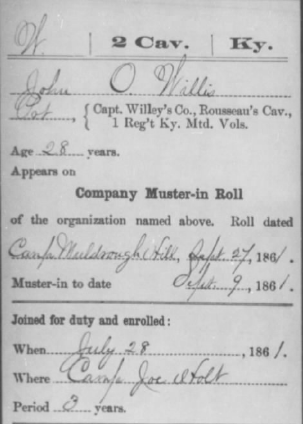 W. | 2 Cav. | Ky.
John O. Willis
Pvt, { Capt. Willey's Co., Rousseau's Cav.,
1 Reg't Ky. Mtd. Vols.
Age 28 years.
Appears on
Company Muster-in Roll
of the organization named above. Roll dated
Camp Muldrough Hill, Sept. 27, 1861.
Muster-in to date Sept. 9, 1861.
Joined for duty and enrolled:
When July 28, 1861.
Where Camp Joe Holt
Period 3 years.